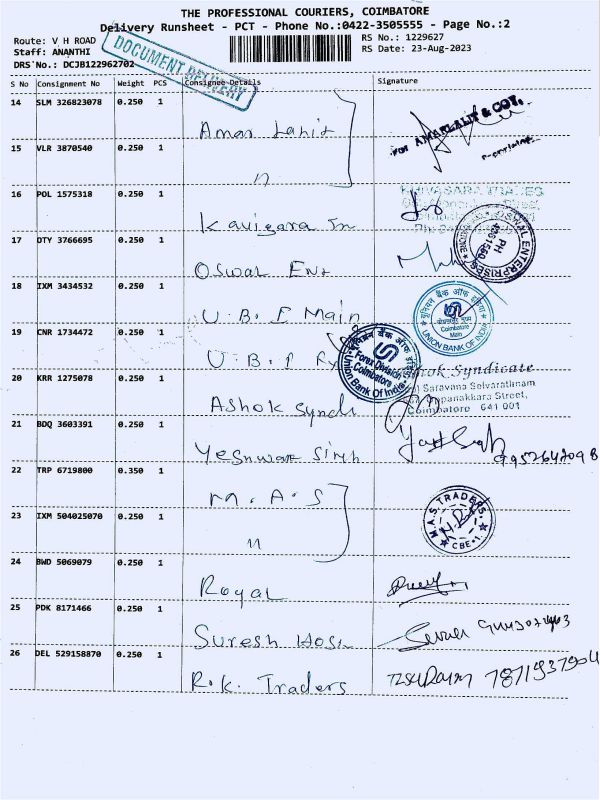 THE PROFESSIONAL COURIERS, COIMBATORE
Delivery Runsheet - PCT - Phone No.:0422-3505555 - Page No.:2
Route: V H ROAD
Staff: ANANTHI
DRS No.: DCJB122962702
DOCUMENT DELIVERY
RS No.: 1229627
RS Date: 23-Aug-2023
S No Consignment No Weight PCS Consignee Details Signature
14 SLM 326823078 0.250 1
Amar Lahit
For AMARLALIT & COY.
15 VLR 3870540 0.250 1
"
16 POL 1575318 0.250 1
Kavigara
KHIVASARA TRADES
17 DTY 3766695 0.250 1
Oswal Ent
OSWAL ENTERPRISES
PH
18 IXM 3434532 0.250 1
U.B.I Main
यूनियन बैंक ऑफ इंडिया
Coimbatore
Main
UNION BANK OF INDIA
19 CNR 1734472 0.250 1
U.B.I
यूनियन बैंक ऑफ इंडिया
Forex Division
Coimbatore
Union Bank Of India
20 KRR 1275078 0.250 1
Ashok Syndi
Ashok Syndicate
Saravana Selvarathnam
Street,
Coimbatore 641 001
21 BDQ 3603391 0.250 1
Yeshwant Singh
22 TRP 6719800 0.350 1
M.A.S
M.A.S. TRADERS
CBE-1
23 IXM 504025070 0.250 1
"
24 BWD 5069079 0.250 1
Royal
25 PDK 8171466 0.250 1
Suresh Hosi
26 DEL 529158870 0.250 1
R.K. Traders
7871937904